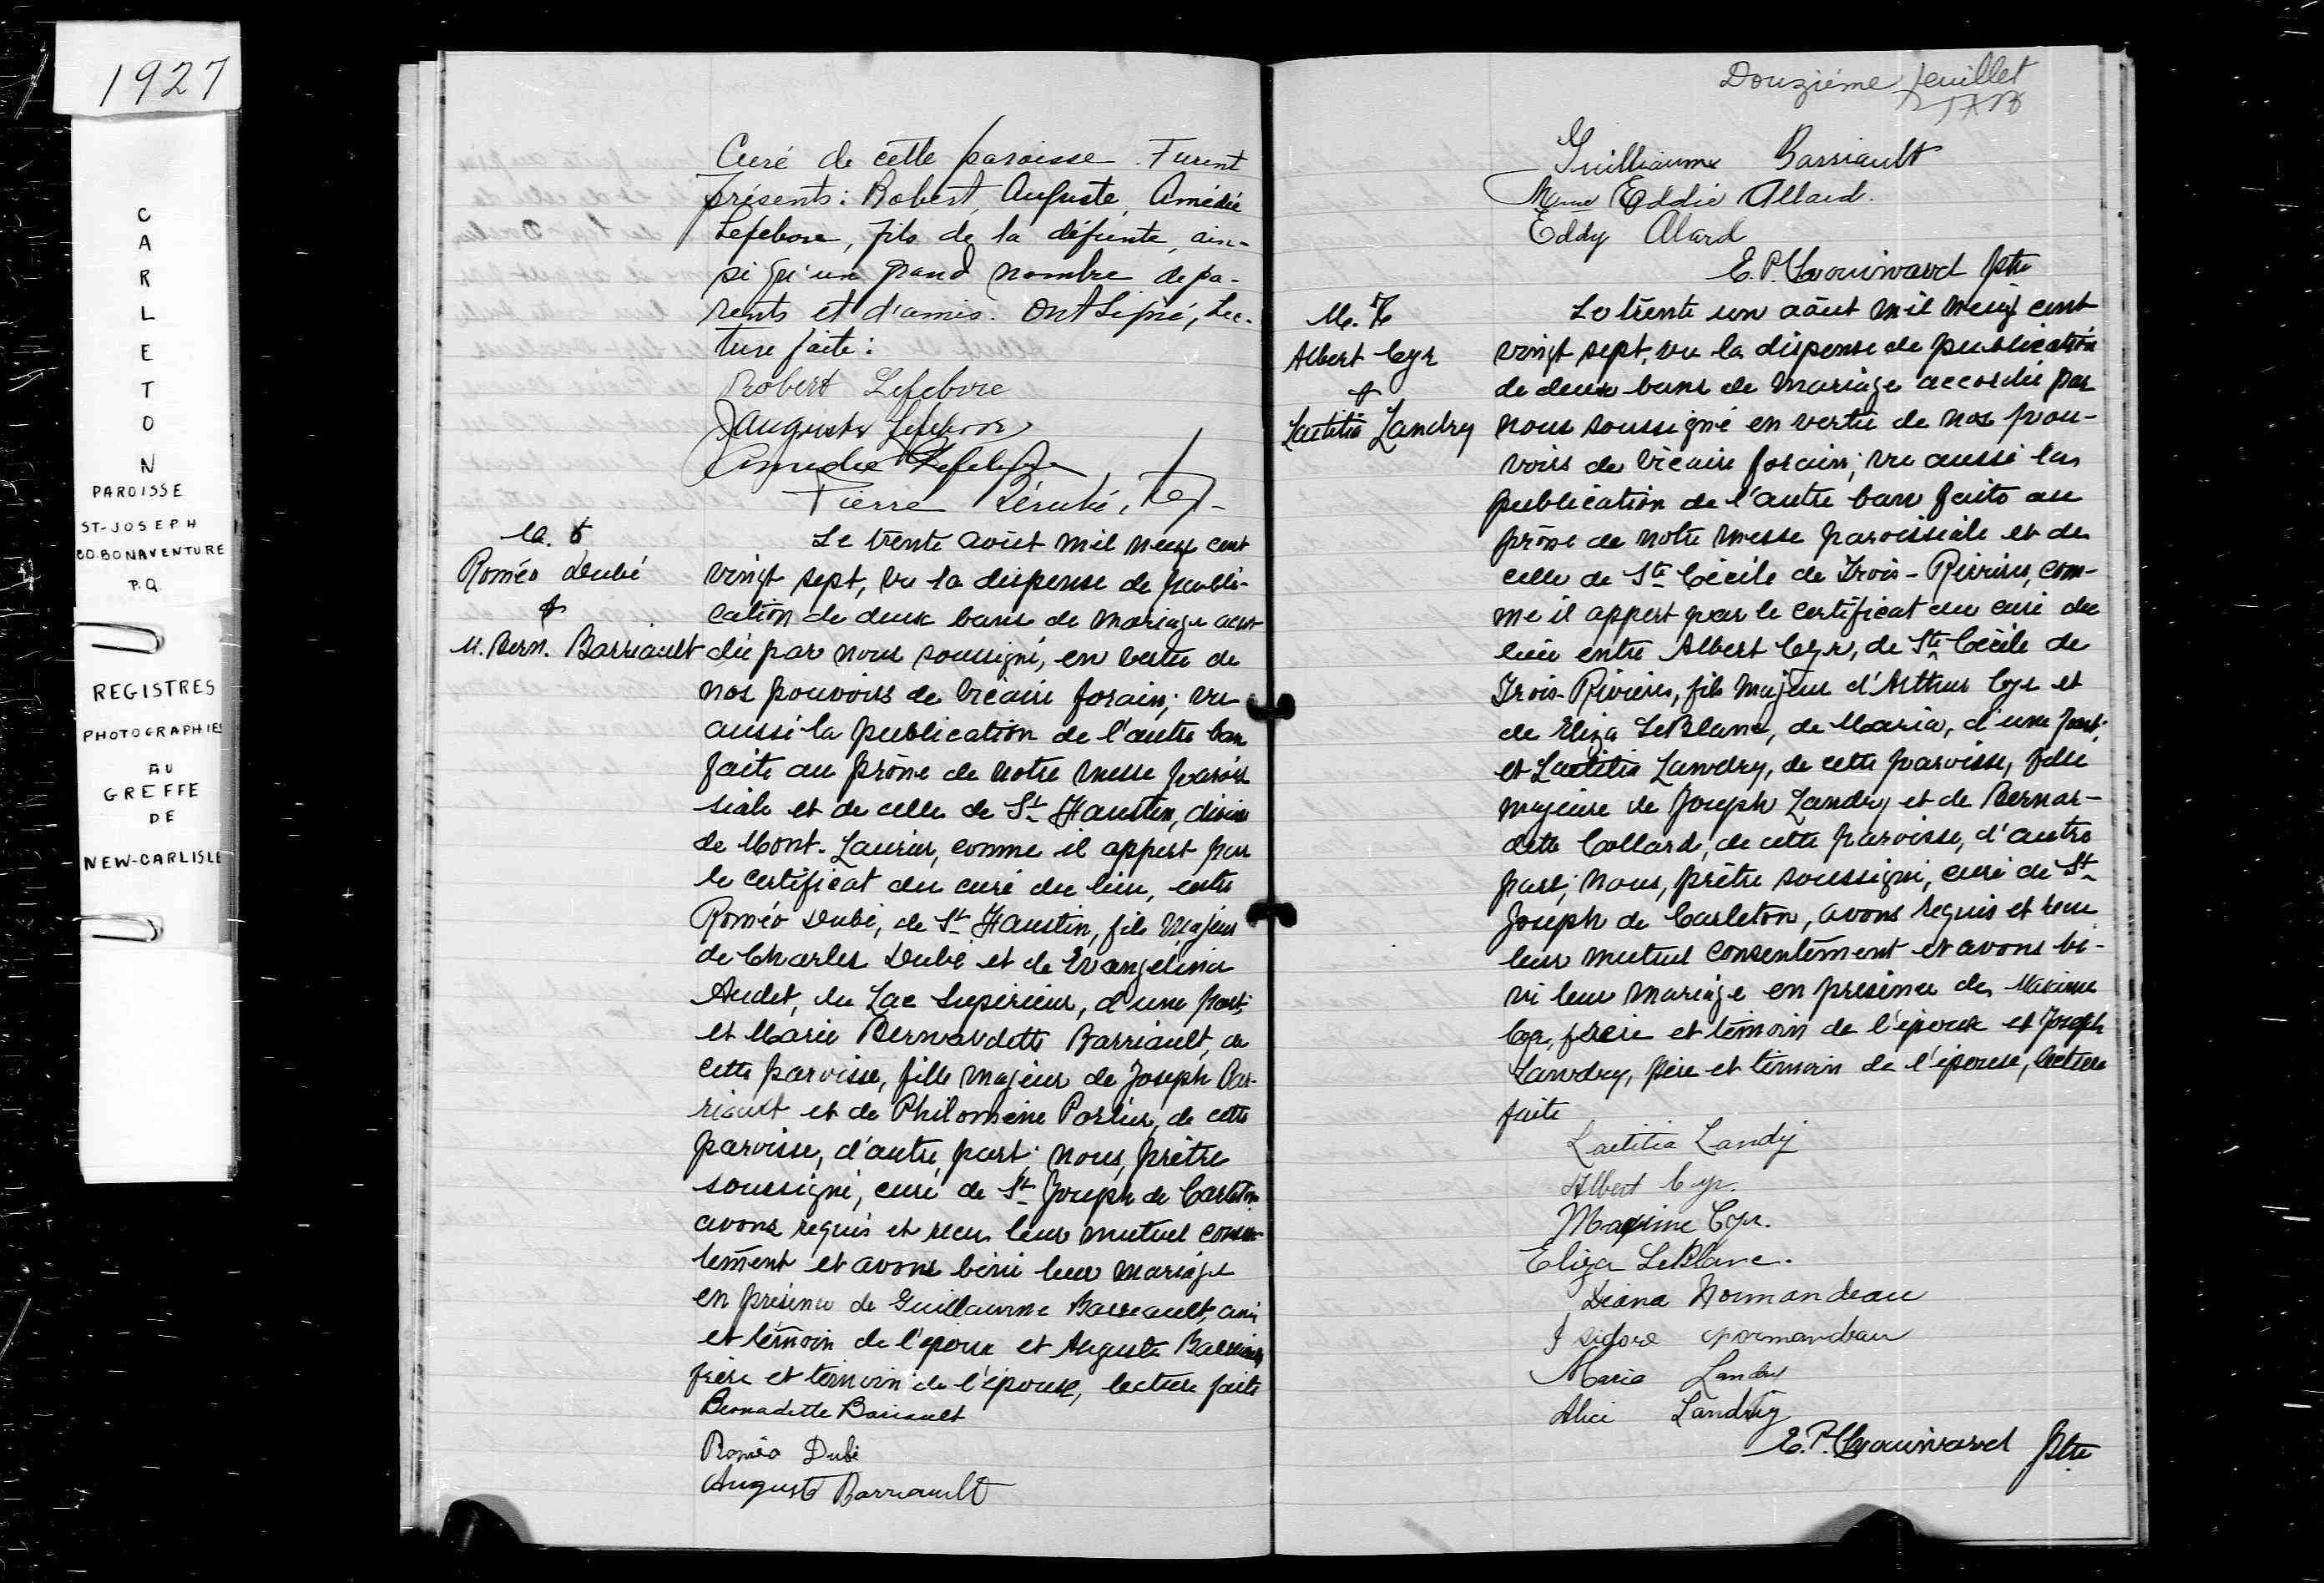 1927
CARLETON
PAROISSE
ST-JOSEPH
CO.BONAVENTURE
P.Q.
REGISTRES
PHOTOGRAPHIES
AU
GREFFE
DE
NEW-CARLISLE
Curé de cette paroisse. Furent
présents: Robert, Auguste, Amédée
Lefebvre, fils de la défunte, ain-
si qu'un grand nombre de pa-
rents et d'amis. Ont signé, lec-
ture faite:
Robert Lefebvre
Auguste Lefebvre
Amédée Lefebvre
Pierre Bérubé,
M. 6
Roméo Dubé
&
M. Bern. Barriault
Le trente août mil neuf cent
vingt sept, vu la dispense de publi-
cation de deux bans de mariage accor-
dée par nous soussigné, en vertu de
nos pouvoirs de vicaire forain; vu
aussi la publication de l'autre ban
faite au prône de notre messe parois
siale et de celle de St Faustin,
de Mont-Laurier, comme il appert par
le certificat du curé du lieu, entre
Roméo Dubé, de St Faustin, fils majeur
de Charles Dubé et de Evangelina
Audet, du Lac Supérieur, d'une part;
et Marie Bernardette Barriault, de
cette paroisse, fille majeur de Joseph Bar-
riault et de Philomène Porlier, de cette
paroisse, d'autre part; nous, prêtre
soussigné, curé de St Joseph de Carleton
avons requis et recu leur mutuel consen-
tement et avons béni leur mariage
en présence de Guillaume Barriault, ami
et témoin de l'époux et Auguste Barriault
frère et témoin de l'épouse, lecture faite
Bernadette Barriault
Roméo Dubé
Auguste Barriault
Douzième feuillet
Guilliaume Barriault
Mme Eddie Allard.
Eddy Alard
E. P. Chouinard Ptre
M. 7
Albert Cyr
&
Laetitia Landry
Le trente un août mil neuf cent
vingt sept, vu la dispense de publication
de deux bans de mariage accordée par
nous soussigné en vertu de nos pou-
voirs de vicaire forain; vu aussi la
publication de l'autre ban faite au
prône de notre messe paroissiale et de
celle de Ste Cécile de Trois-Rivières, com-
me il appert par le certificat du curé du
lieu entre Albert Cyr, de Ste Cécile de
Trois-Rivières, fils majeur d'Arthur Cyr et
de Eliza LeBlanc, de Maria, d'une part;
et Laetitia Landry, de cette paroisse, fille
majeure de Joseph Landry et de Bernar-
dette Collard, de cette paroisse, d'autre
part; nous, prêtre soussigné, curé de St
Joseph de Carleton, avons requis et recu
leur mutuel consentement et avons bé-
ni leur mariage en présence de Maxime
Cyr, frère et témoin de l'époux et Joseph
Landry, père et témoin de l'épouse, lecture
faite
Laetitia Landry
Albert Cyr.
Maxime Cyr.
Eliza LeBlanc.
Diana Normandeau
Isidore Normandeau
Maria Landry
Alice Landry
E. P. Chouinard Ptre